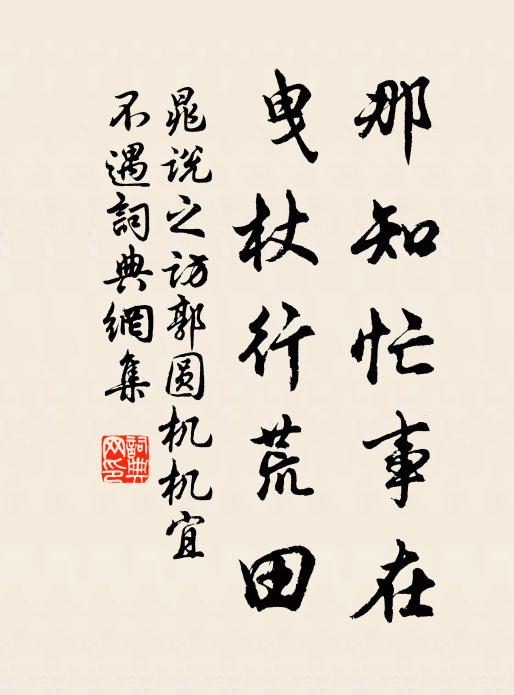 那知忙事在
曳杖行荒田
晁说之访郭圆机机宜
不遇詞典網集
詞典网印